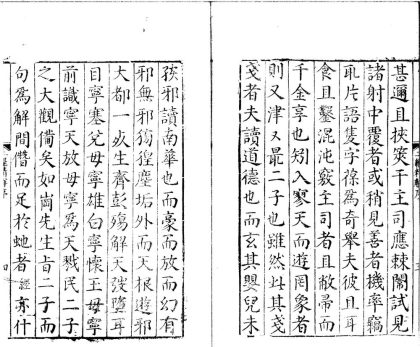 甚邇且挾筴干主司應棘闈試見
諸射中覆者或稍見善者機率竊
耴片語隻字葆為奇舉夫彼且耳
食且鑿混沌竅主司者且敝帚而
千金享也矧入寥天而遊罔象者
則又津又最二子也雖然此其淺
淺者夫讀道德也而玄其嬰兒未
孩邪讀南華也而豪而放而幻有
邪無邪獨猩塵垢外而天根遊邪
大都一死生齊彭殤解天弢墮耳
目寧蹇兌毋寧雄白寧懷玉毋寧
前識寧天放毋寧為天戮民二子
之大觀備矣如齒先生旨二子而
句為解間僭而足於虵者經亦什
四